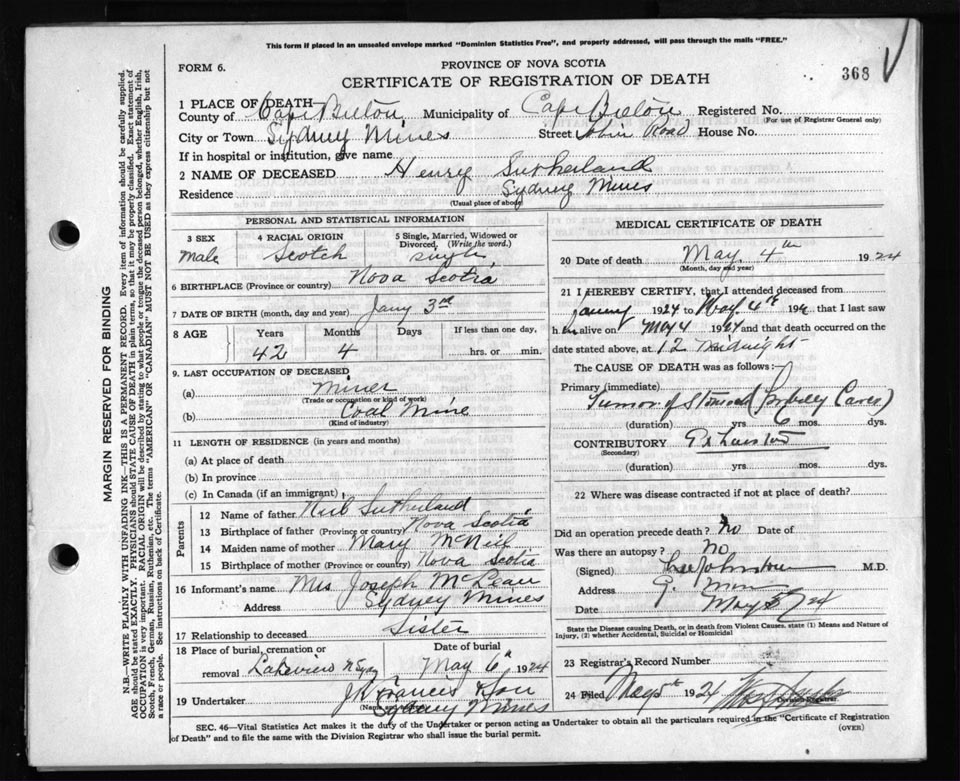 This form if placed in an unsealed envelope marked "Dominion Statistics Free", and properly addressed, will pass through the mails "FREE."
PROVINCE OF NOVA SCOTIA
FORM 6.
CERTIFICATE OF REGISTRATION OF DEATH
368
1 PLACE OF DEATH—
County of Cape Breton Municipality of Cape Breton Registered No.
(For use of Registrar General only)
City or Town Sydney Mines Street Road House No.
If in hospital or institution, give name
2 NAME OF DECEASED Henry Sutherland
Residence Sydney Mines
(Usual place of abode)
PERSONAL AND STATISTICAL INFORMATION
3 SEX 4 RACIAL ORIGIN 5 Single, Married, Widowed or Divorced, (Write the word.)
Male Scotch single
6 BIRTHPLACE (Province or country) Nova Scotia
7 DATE OF BIRTH (month, day and year) Jany 3rd
8 AGE Years Months Days If less than one day,
42 4 hrs. or min.
9. LAST OCCUPATION OF DECEASED
(a) Miner
(Trade or occupation or kind of work)
(b) Coal Mine
(Kind of industry)
11 LENGTH OF RESIDENCE (in years and months)
(a) At place of death
(b) In province
(c) In Canada (if an immigrant)
Parents
12 Name of father Neil Sutherland
13 Birthplace of father (Province or country) Nova Scotia
14 Maiden name of mother Mary McNeil
15 Birthplace of mother (Province or country) Nova Scotia
16 Informant's name Mrs Joseph McLean
Address Sydney Mines
17 Relationship to deceased Sister
18 Place of burial, cremation or removal Date of burial
Lakeview N Syd May 6th, 1924
19 Undertaker J Francis & Son
Sydney Mines
MEDICAL CERTIFICATE OF DEATH
20 Date of death May 4th 1924
(Month, day and year)
21 I HEREBY CERTIFY, that I attended deceased from
1924 to May 4th 192 that I last saw
h im alive on May 4 1924 and that death occurred on
date stated above, at 12 Midnight
The CAUSE OF DEATH was as follows:—
Primary (immediate)
Tumor of Stomach
(duration) yrs 6 mos. dys.
CONTRIBUTORY
(Secondary)
(duration) yrs mos. dys.
22 Where was disease contracted if not at place of death?
Did an operation precede death? No Date of
Was there an autopsy? No
(Signed) M.D.
Address
Date May 24
State the Disease causing Death, or in death from Violent Causes, state (1) Means and Nature of Injury, (2) whether Accidental, Suicidal or Homicidal
23 Registrar's Record Number
24 Filed, May 5th 1924
SEC. 46—Vital Statistics Act makes it the duty of the Undertaker or person acting as Undertaker to obtain all the particulars required in the "Certificate of Registration
of Death" and to file the same with the Division Registrar who shall issue the burial permit.
(OVER)
MARGIN RESERVED FOR BINDING
N.B.—WRITE PLAINLY WITH UNFADING INK—THIS IS A PERMANENT RECORD. Every item of information should be carefully supplied.
AGE should be stated EXACTLY. PHYSICIANS should STATE CAUSE OF DEATH in plain terms, so that it may be properly classified. Exact statement of
OCCUPATION is very important. RACIAL ORIGIN will be described by stating to what people or tongue the deceased person belonged, whether English, Irish,
Scotch, French, German, Russian, Ruthenian, etc. The terms "AMERICAN" or "CANADIAN" MUST NOT BE USED as they express citizenship but not
a race or people. See instructions on back of Certificate.